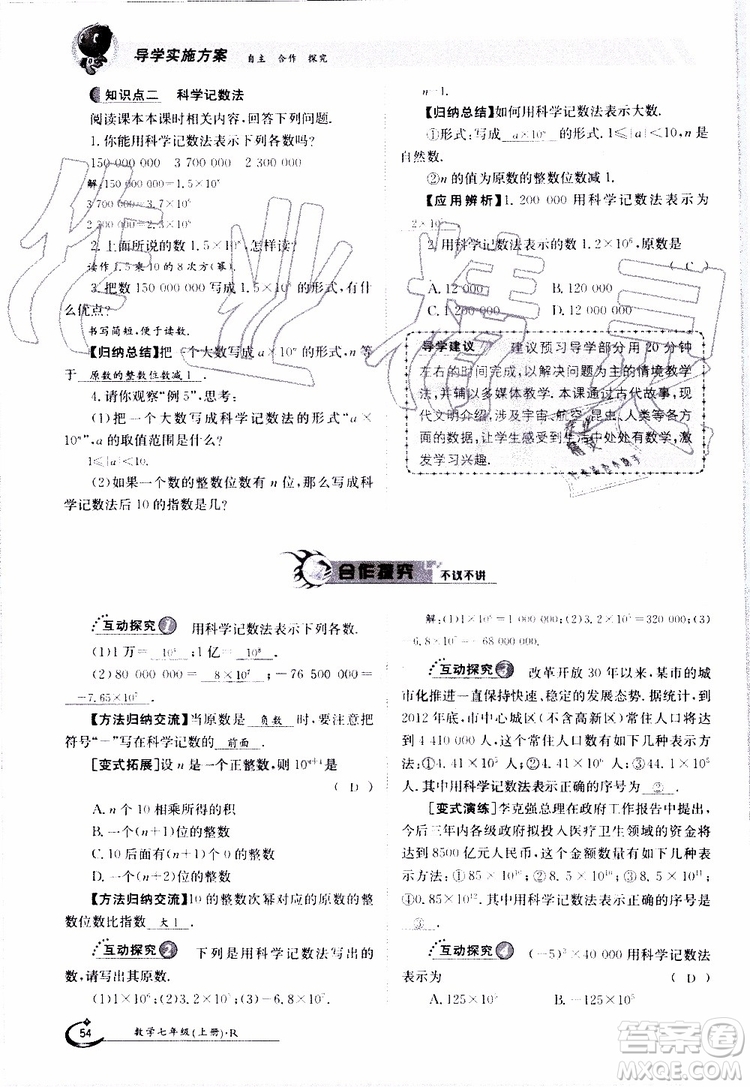 导学实施方案 自主 合作 探究
知识点二 科学记数法
阅读课本本课时相关内容,回答下列问题.
1. 你能用科学记数法表示下列各数吗?
150 000 000 3 700 000 2 300 000
解:150 000 000=1.5×10⁸
3 700 000=3.7×10⁶
2 300 000=2.3×10⁶
2. 上面所说的数 1.5×10⁸,怎样读?
读作1.5乘10的8次方(幂).
3. 把数 150 000 000 写成 1.5×10⁸ 的形式,有什
么优点?
书写简短,便于读数.
【归纳总结】把一个大数写成 a×10ⁿ 的形式,关键在
于 原数的整数位数减1 .
4. 请你观察“例5”,思考:
(1)把一个大数写成科学记数法的形式“a×
10ⁿ”,a的取值范围是什么?
1≤|a|<10
(2)如果一个数的整数位有 n 位,那么写成科
学记数法后 10 的指数是几?
n-1.
【归纳总结】如何用科学记数法表示大数.
①形式:写成 a×10ⁿ 的形式. 1≤|a|<10,n 是
自然数.
②n 的值为原数的整数位数减1.
【应用辨析】1. 200 000 用科学记数法表示为
2×10⁵
2. 用科学记数法表示的数 1.2×10⁶,原数是
( C )
A. 12 000 B. 120 000
C. 1 200 000 D. 12 000 000
导学建议 建议预习导学部分用20分钟
左右的时间完成,以解决问题为主的情境教学
法,并辅以多媒体教学. 本课通过古代故事,现
代文明介绍,涉及宇宙、航空、昆虫、人类等各方
面的数据,让学生感受到生活中处处有数学,以
激发学习兴趣.
合作探究 不议不讲
互动探究1 用科学记数法表示下列各数.
(1)1万= 10⁴ ;1亿= 10⁸ .
(2)80 000 000= 8×10⁷ ;-76 500 000=
-7.65×10⁷ .
【方法归纳交流】当原数是 负数 时,要注意把
符号“-”写在科学记数的 前面 .
[变式拓展]设 n 是一个正整数,则 10ⁿ⁺¹ 是
( D )
A. n 个 10 相乘所得的积
B. 一个(n+1)位的整数
C. 10 后面有(n+1)个 0 的整数
D. 一个(n+2)位的整数
【方法归纳交流】10 的整数次幂对应的原数的整
数位数比指数 大1 .
互动探究2 下列是用科学记数法写出的
数,请写出其原数.
(1)1×10⁶ (2)3.2×10⁵ (3)-6.8×10⁷
解:(1)1×10⁶=1 000 000;(2)3.2×10⁵=320 000;(3)
-6.8×10⁷=-68 000 000.
互动探究3 改革开放 30 年以来,某市的城
市化推进一直保持快速、稳定的发展态势. 据统计,到
2012 年底,市中心城区(不含高新区)常住人口将达到
4 410 000 人,对这个常住人口数有如下几种表示:
①4.41×10⁵ 人;②4.41×10⁶ 人;③44.1×10⁵
人. 其中用科学记数法表示正确的序号为 ② .
[变式演练]李克强总理在政府工作报告中提出,
今后三年内各级政府拟投入医疗卫生领域的资金将
达到 8500 亿元人民币,对这个金额数量有如下几种表
示:①85×10¹⁰;②8.5×10¹⁰;③8.5×10¹¹;
④0.85×10¹². 其中用科学记数法表示正确的序号为
③ .
互动探究4 (-5)³×40 000 用科学记数法
表示为 ( D )
A. 125×10⁵ B. -125×10⁵
54 数学七年级(上册)·R
作业精灵
MXQE.COM